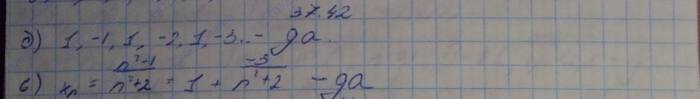 37.42
д) 1, -1, 1, -2, 1, -3... - да.
б) xₙ = n²-1/n²+2 = 1 + -3/n²+2 - да